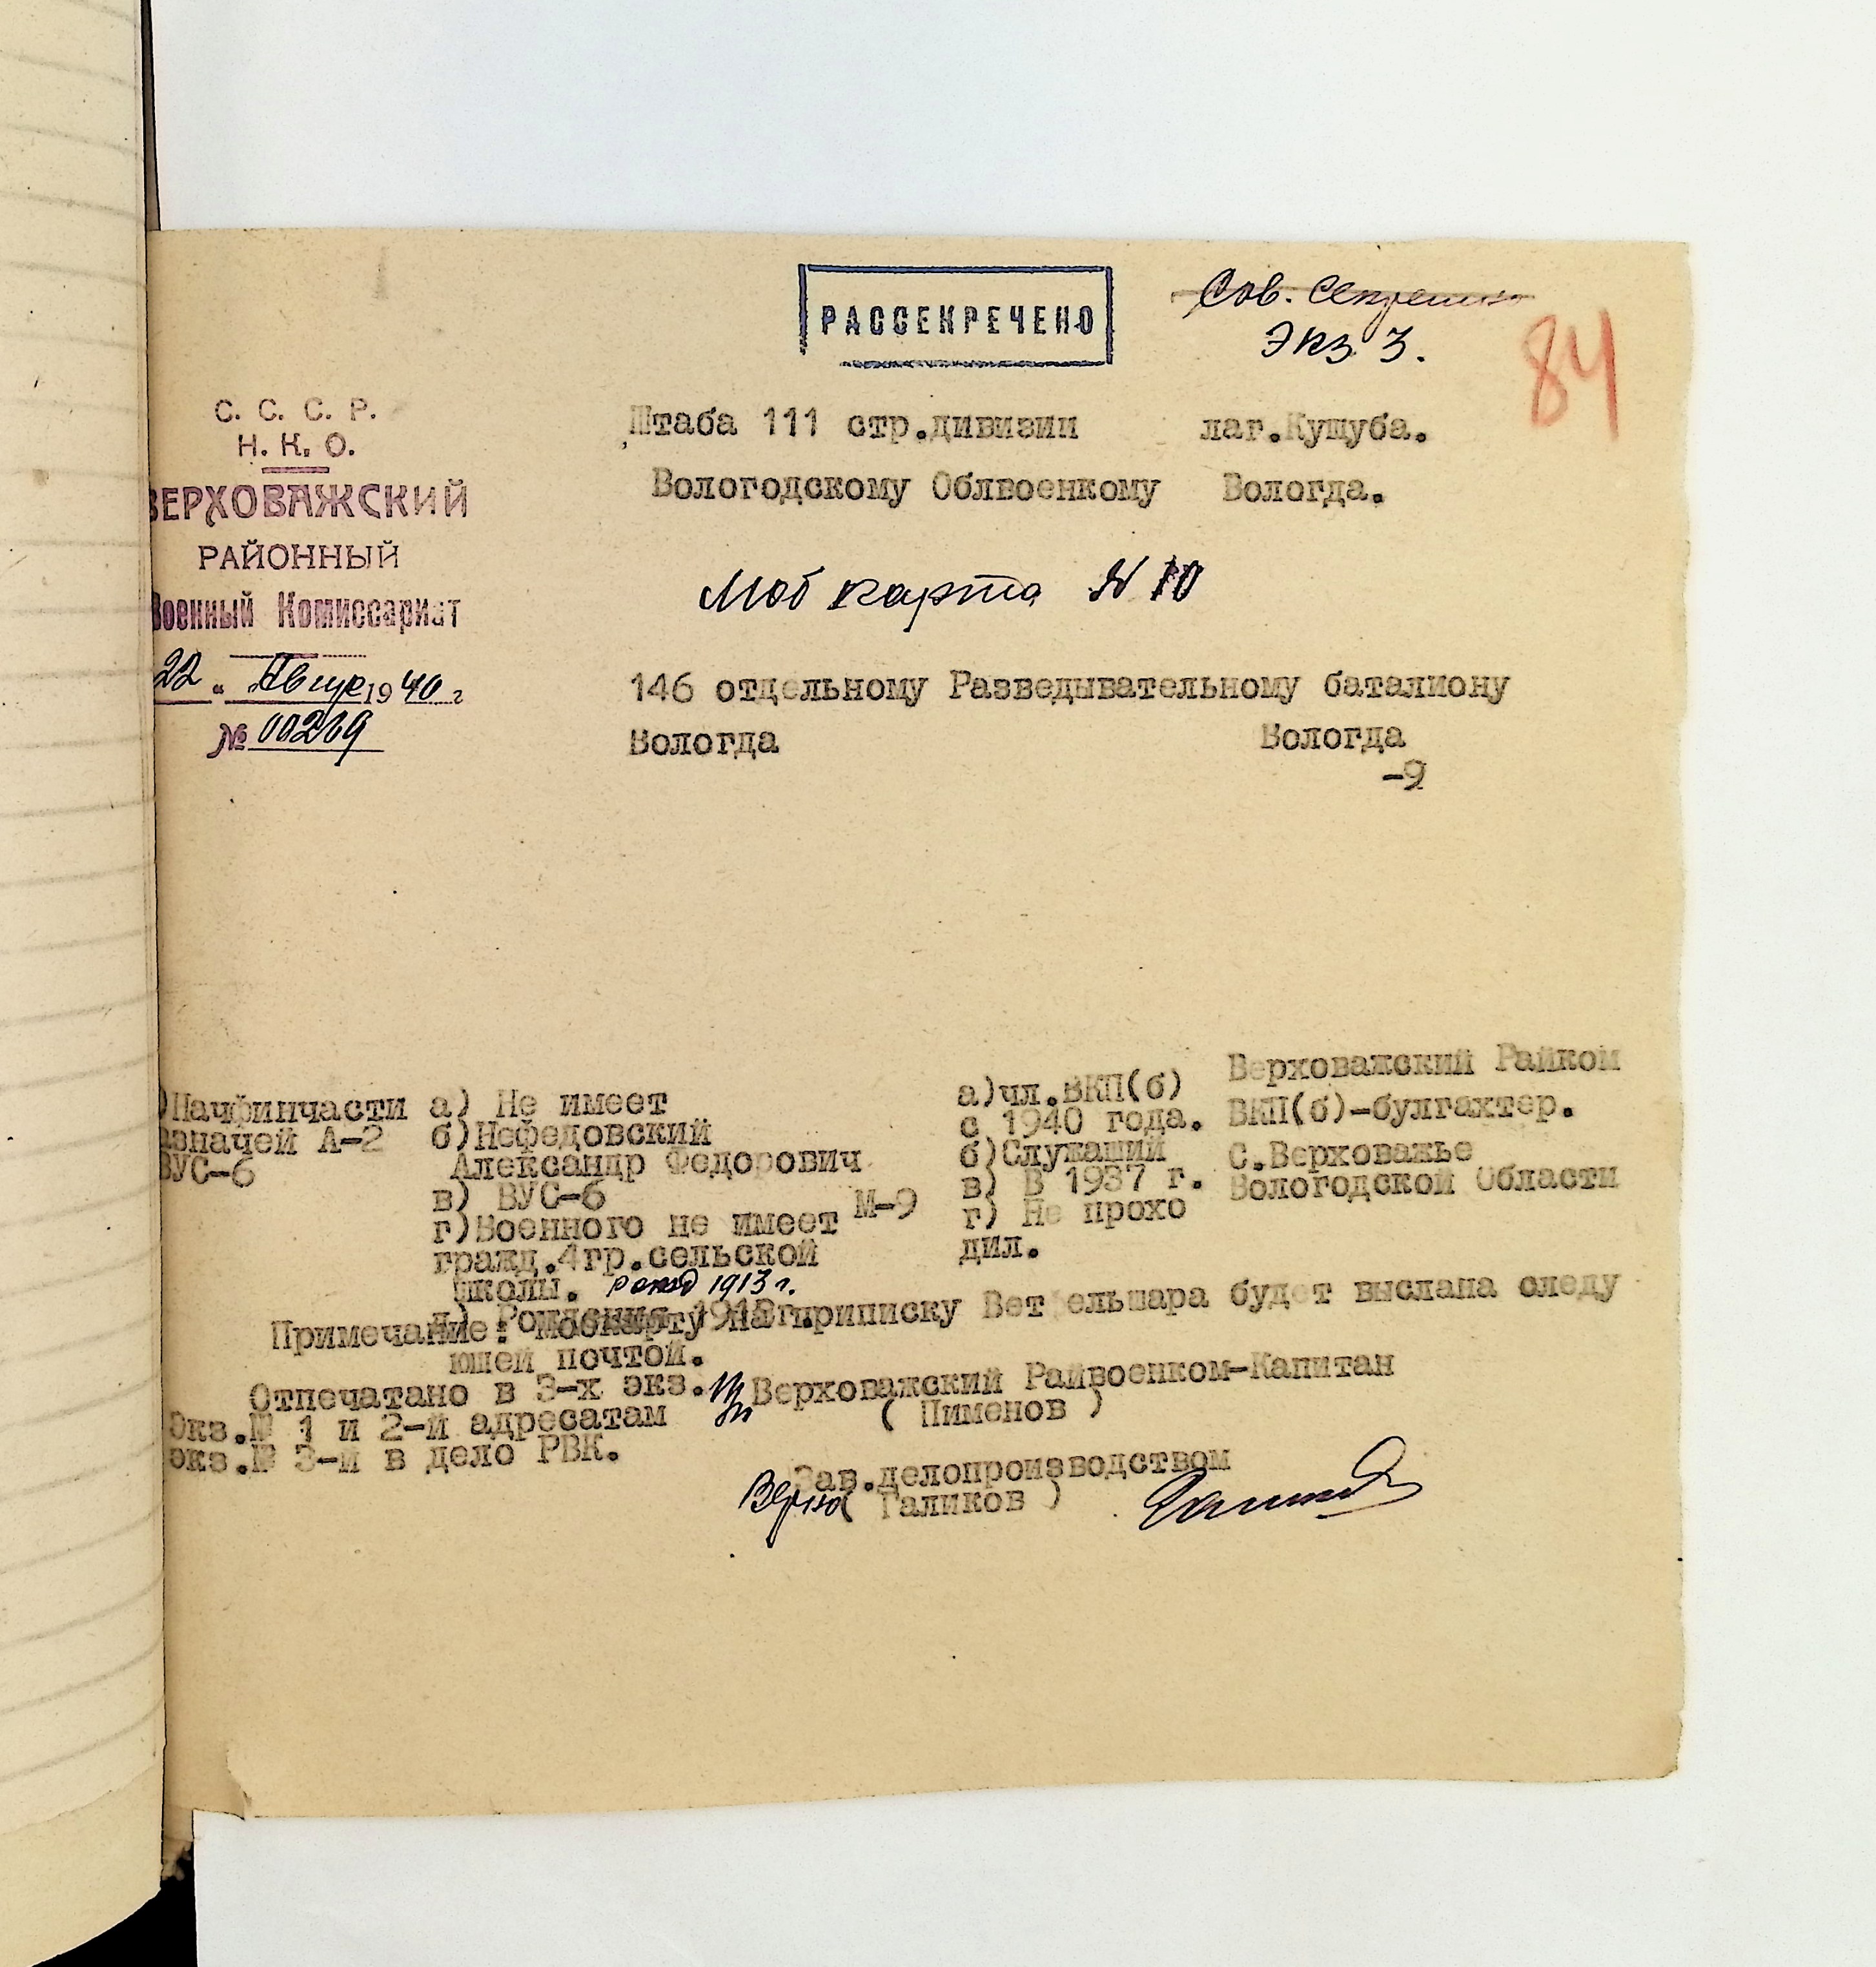 РАССЕКРЕЧЕНО
Сов. Секретно
Экз 3.
84
С. С. С. Р.
Н. К. О.
ВЕРХОВАЖСКИЙ
РАЙОННЫЙ
Военный Комиссариат
22 " Август 1940 г
№ 00269
Штаба 111 стр.дивизии лаг.Кущуба.
Вологодскому Облвоенкому Вологда.
Моб карта N 10
146 отдельному Разведывательному баталиону
Вологда Вологда
-9
)Начфинчасти
азначей А-2
ВУС-6
а) Не имеет
б)Нефедовский
Александр Федорович
в) ВУС-6
г)Военного не имеет
гражд.4гр.сельской
школы. рожд 1913 г.
д) Рождения 1913г.
М-9
а)чл.ВКП(б)
с 1940 года.
б)Служащий
в) В 1937 г.
г) Не прохо
дил.
Верховажский Райком
ВКП(б)-булгахтер.
С.Верховажье
Вологодской Области
Примечание: Мобкарту на приписку Ветфельшара будет выслана следу
ющей почтой.
Отпечатано в 3-х экз.
Экз.№ 1 и 2-й адресатам
экз.№ 3-й в дело РВК.
Верховажский Райвоенком-Капитан
( Пименов )
Зав.делопроизводством
Верно ( Галиков )